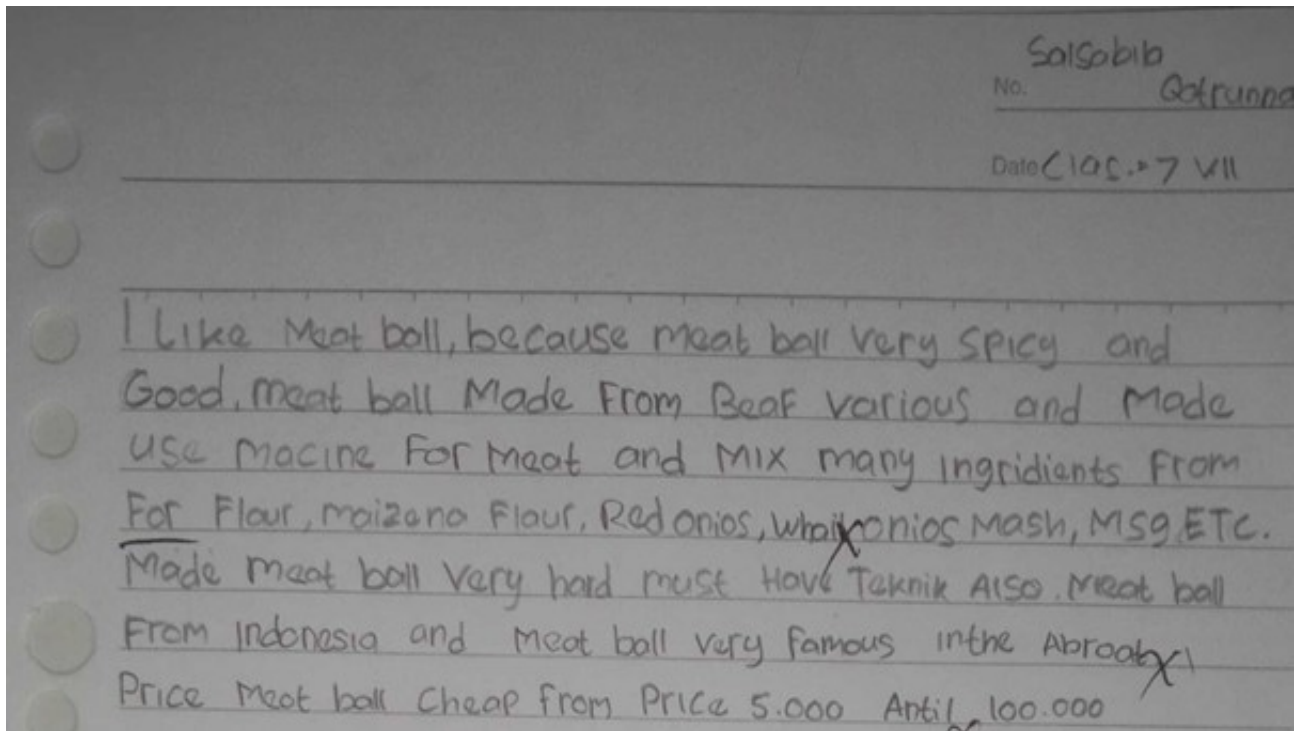 Salsabila
No. Qotrunna
Date Clas : 7 VII
I Like Meat ball, because meat ball very spicy and
Good. meat ball Made From Beaf various and Made
use macine For meat and Mix many ingridients From
For Flour, maizena Flour, Red onios, whait onios Mash, Msg, ETC.
Made meat ball very hard must Have Teknik Also. Meat ball
From Indonesia and meat ball very famous in the Abroat
Price Meat ball Cheap From Price 5.000 Antil 100.000